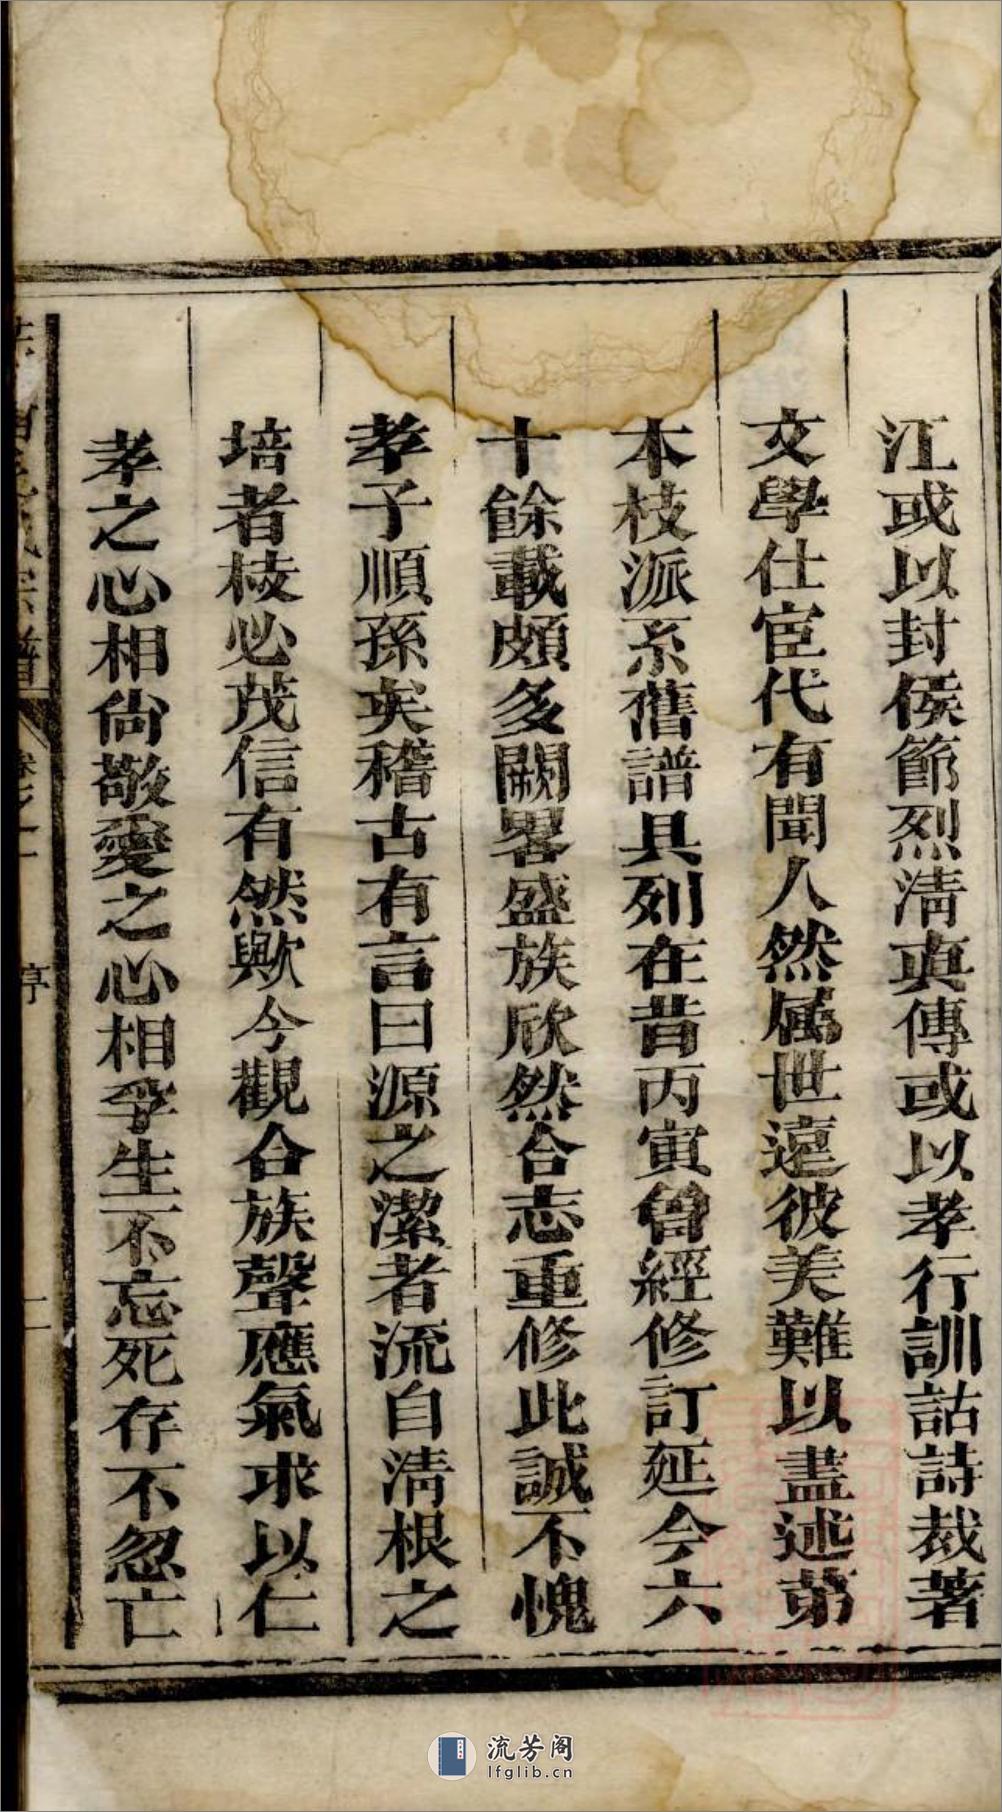 江或以封侯節烈淸眞傳或以孝行訓詁詩裁著
文學仕宦代有聞人然属世遠彼美難以盡述第
本枝派系舊譜具列在昔丙寅曾經修訂延今六
十餘載頗多闕畧盛族欣然合志重修此誠不愧
孝子順孫矣稽古有言曰源之潔者流自淸根之
培者枝必茂信有然歟今觀合族聲應氣求以仁
孝之心相尙敬愛之心相孚生不忘死存不忽亡
宗譜
卷之一
序
二
流芳阁
lfglib.cn